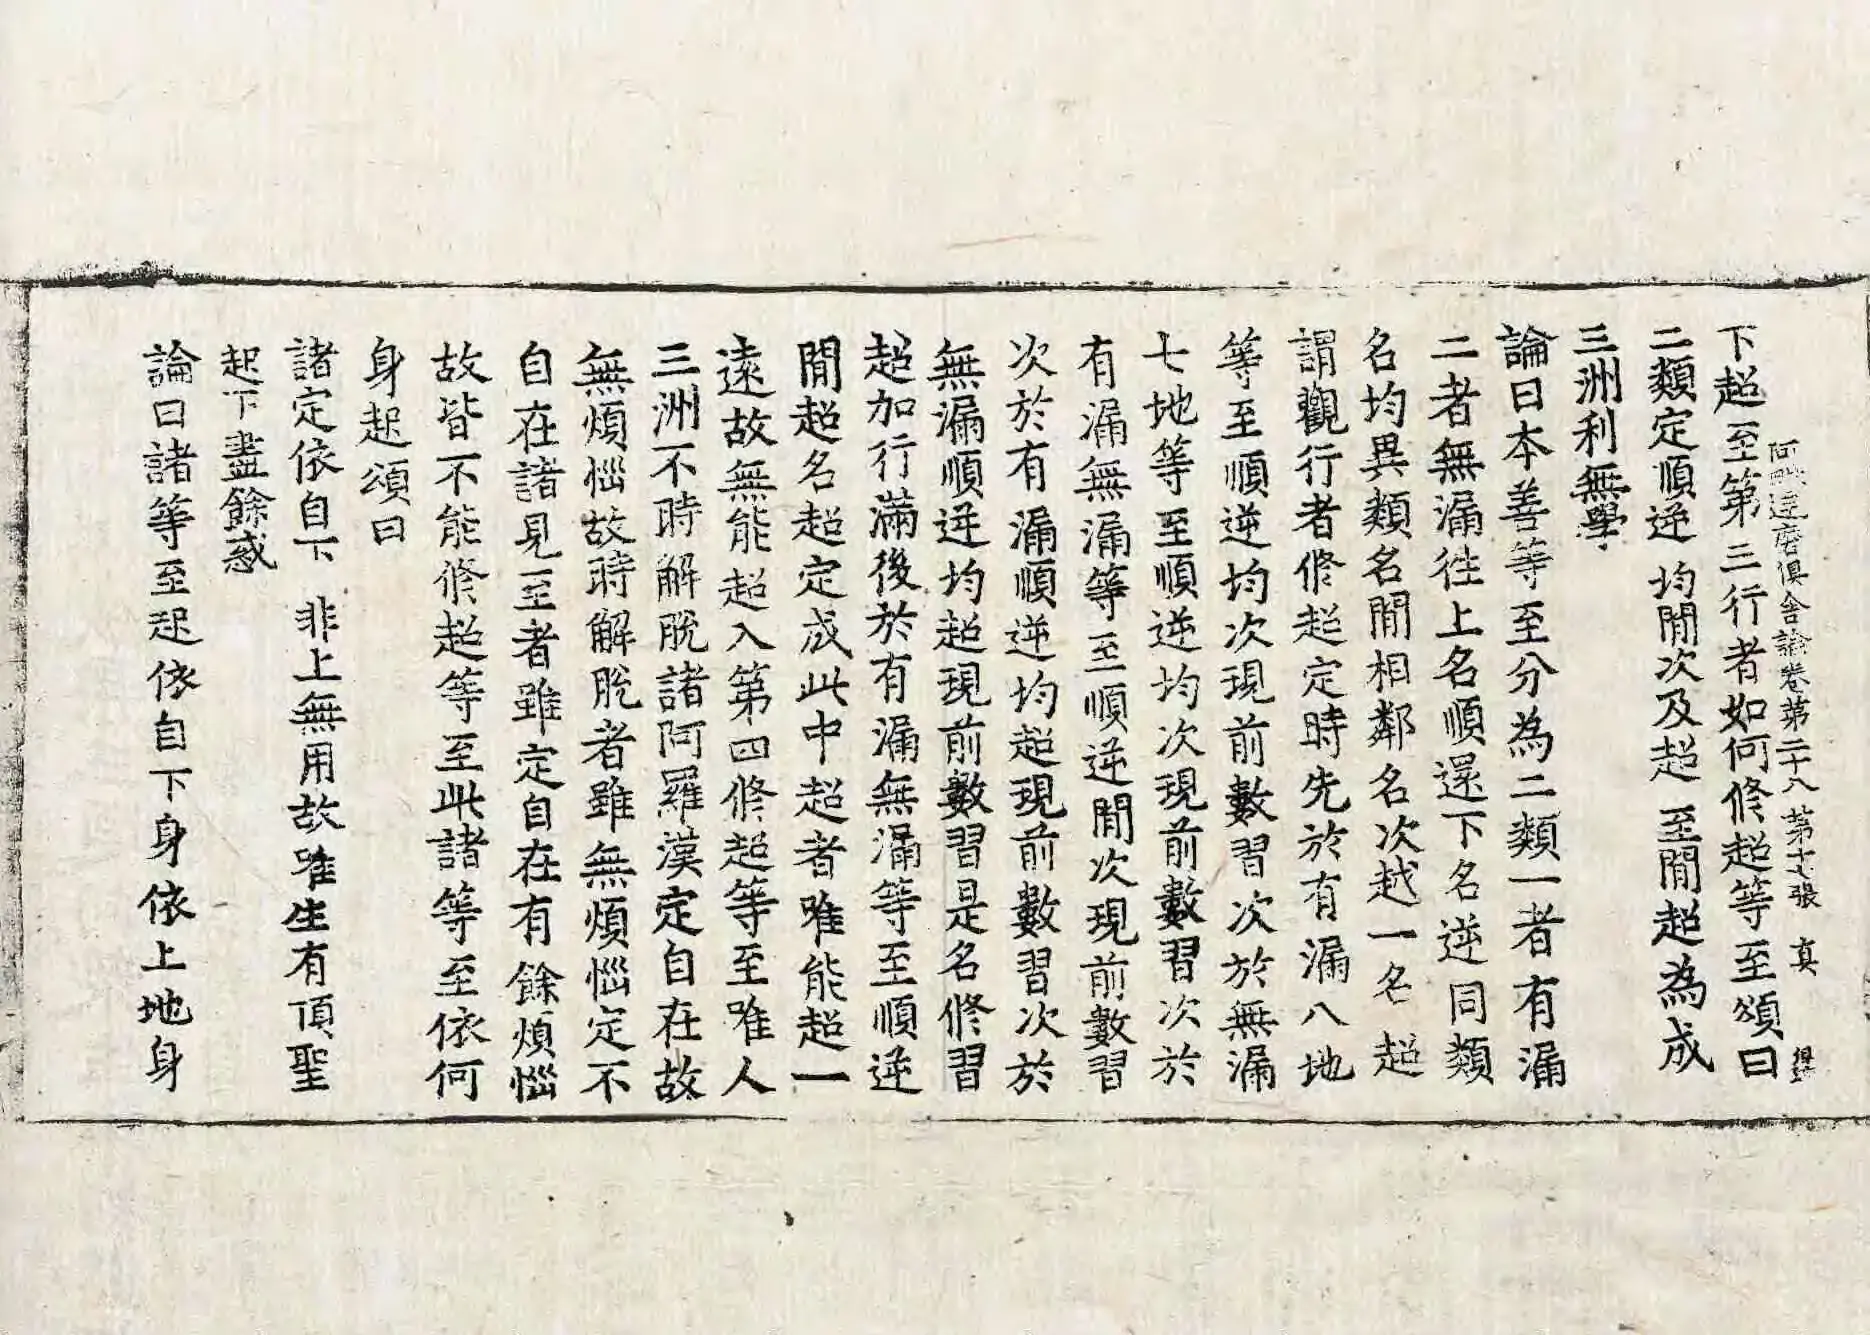 阿毗達磨俱舍論卷第二十八 第十七張 真
下超至第三行者如何修超等至頌曰
二類定順逆 均閒次及超 至閒超為成
三洲利無學
論曰本善等至分為二類一者有漏
二者無漏往上名順還下名逆同類
名均異類名閒相鄰名次越一名超
謂觀行者修超定時先於有漏八地
等至順逆均次現前數習次於無漏
七地等至順逆均次現前數習次於
有漏無漏等至順逆閒次現前數習
次於有漏順逆均超現前數習次於
無漏順逆均超現前數習是名修習
超加行滿後於有漏無漏等至順逆
閒超名超定成此中超者唯能超一
遠故無能超入第四修超等至唯人
三洲不時解脫諸阿羅漢定自在故
無煩惱故時解脫者雖無煩惱定不
自在諸見至者雖定自在有餘煩惱
故皆不能修超等至此諸等至依何
身起頌曰
諸定依自下 非上無用故唯生有頂聖
起下盡餘惑
論曰諸等至起依自下身依上地身